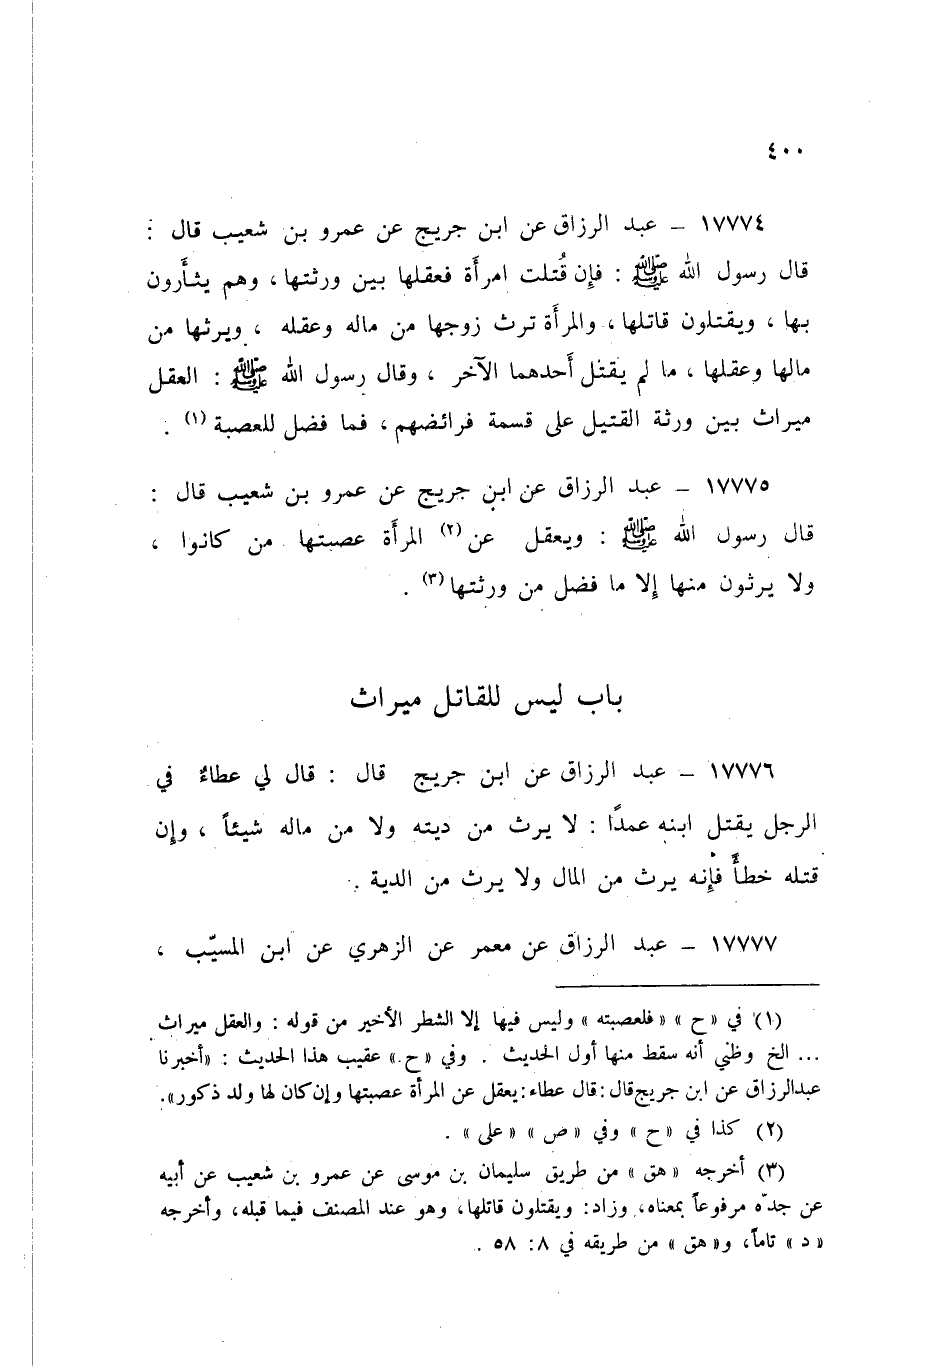 ٤٠٠
١٧٧٧٤ – عبد الرزاق عن ابن جريج عن عمرو بن شعيب قال :
قال رسول الله ﷺ : فإن قُتلت امرأة فعقلها بين ورثتها ، وهم يثأرون
بها ، ويقتلون قاتلها ، والمرأة ترث زوجها من ماله وعقله ، ويرثها من
مالها وعقلها ، ما لم يقتل أحدهما الآخر ، وقال رسول الله ﷺ : العقل
ميراث بين ورثة القتيل على قسمة فرائضهم ، فما فضل للعصبة (١) .
١٧٧٧٥ – عبد الرزاق عن ابن جريج عن عمرو بن شعيب قال :
قال رسول الله ﷺ : ويعقل عن (٢) المرأة عصبتها من كانوا ،
ولا يرثون منها إلا ما فضل من ورثتها (٣) .
باب ليس للقاتل ميراث
١٧٧٧٦ – عبد الرزاق عن ابن جريج قال : قال لي عطاءٌ في
الرجل يقتل ابنه عمدًا : لا يرث من ديته ولا من ماله شيئاً ، وإن
قتله خطأً فإنه يرث من المال ولا يرث من الدية .
١٧٧٧٧ – عبد الرزاق عن معمر عن الزهري عن ابن المسيّب ،
(١) في «ح» «فلعصبته» وليس فيها إلا الشطر الأخير من قوله : والعقل ميراث
... الخ وظني أنه سقط منها أول الحديث . وفي «ح» عقيب هذا الحديث : «أخبرنا
عبدالرزاق عن ابن جريج قال : قال عطاء : يعقل عن المرأة عصبتها وإن كان لها ولد ذكور».
(٢) كذا في «ح» وفي «ص» «على» .
(٣) أخرجه «هق» من طريق سليمان بن موسى عن عمرو بن شعيب عن أبيه
عن جدّه مرفوعاً بمعناه، وزاد: ويقتلون قاتلها، وهو عند المصنف فيما قبله، وأخرجه
«د» تاماً، و«هق» من طريقه في ٨: ٥٨ .